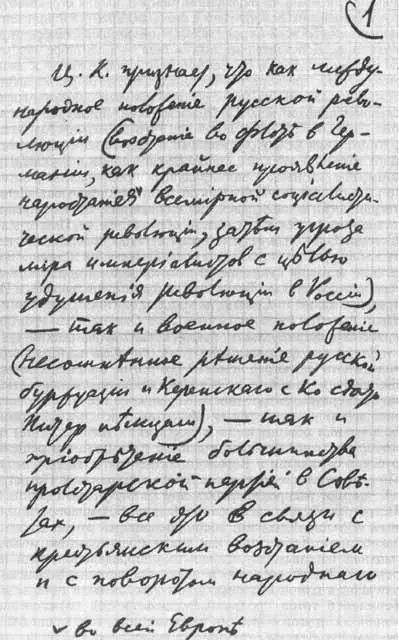 1
Ц. К. признает, что как между-
народное положение русской рево-
люции (восстание во флоте в Гер-
мании, как крайнее проявление
нарастания всемирной социалисти-
ческой революции, затѣм угроза
мира империалистов с цѣлью
удушения революции в России),
— так и военное положение
(несомнѣнное рѣшение русской
буржуазии и Керенскаго с Ко сдать
Питер нѣмцам), — так и
приобрѣтение большинства
пролетарской партией в Совѣ-
тах, — все это в связи с
крестьянским возстанием
и с поворотом народнаго
во всей Европѣ